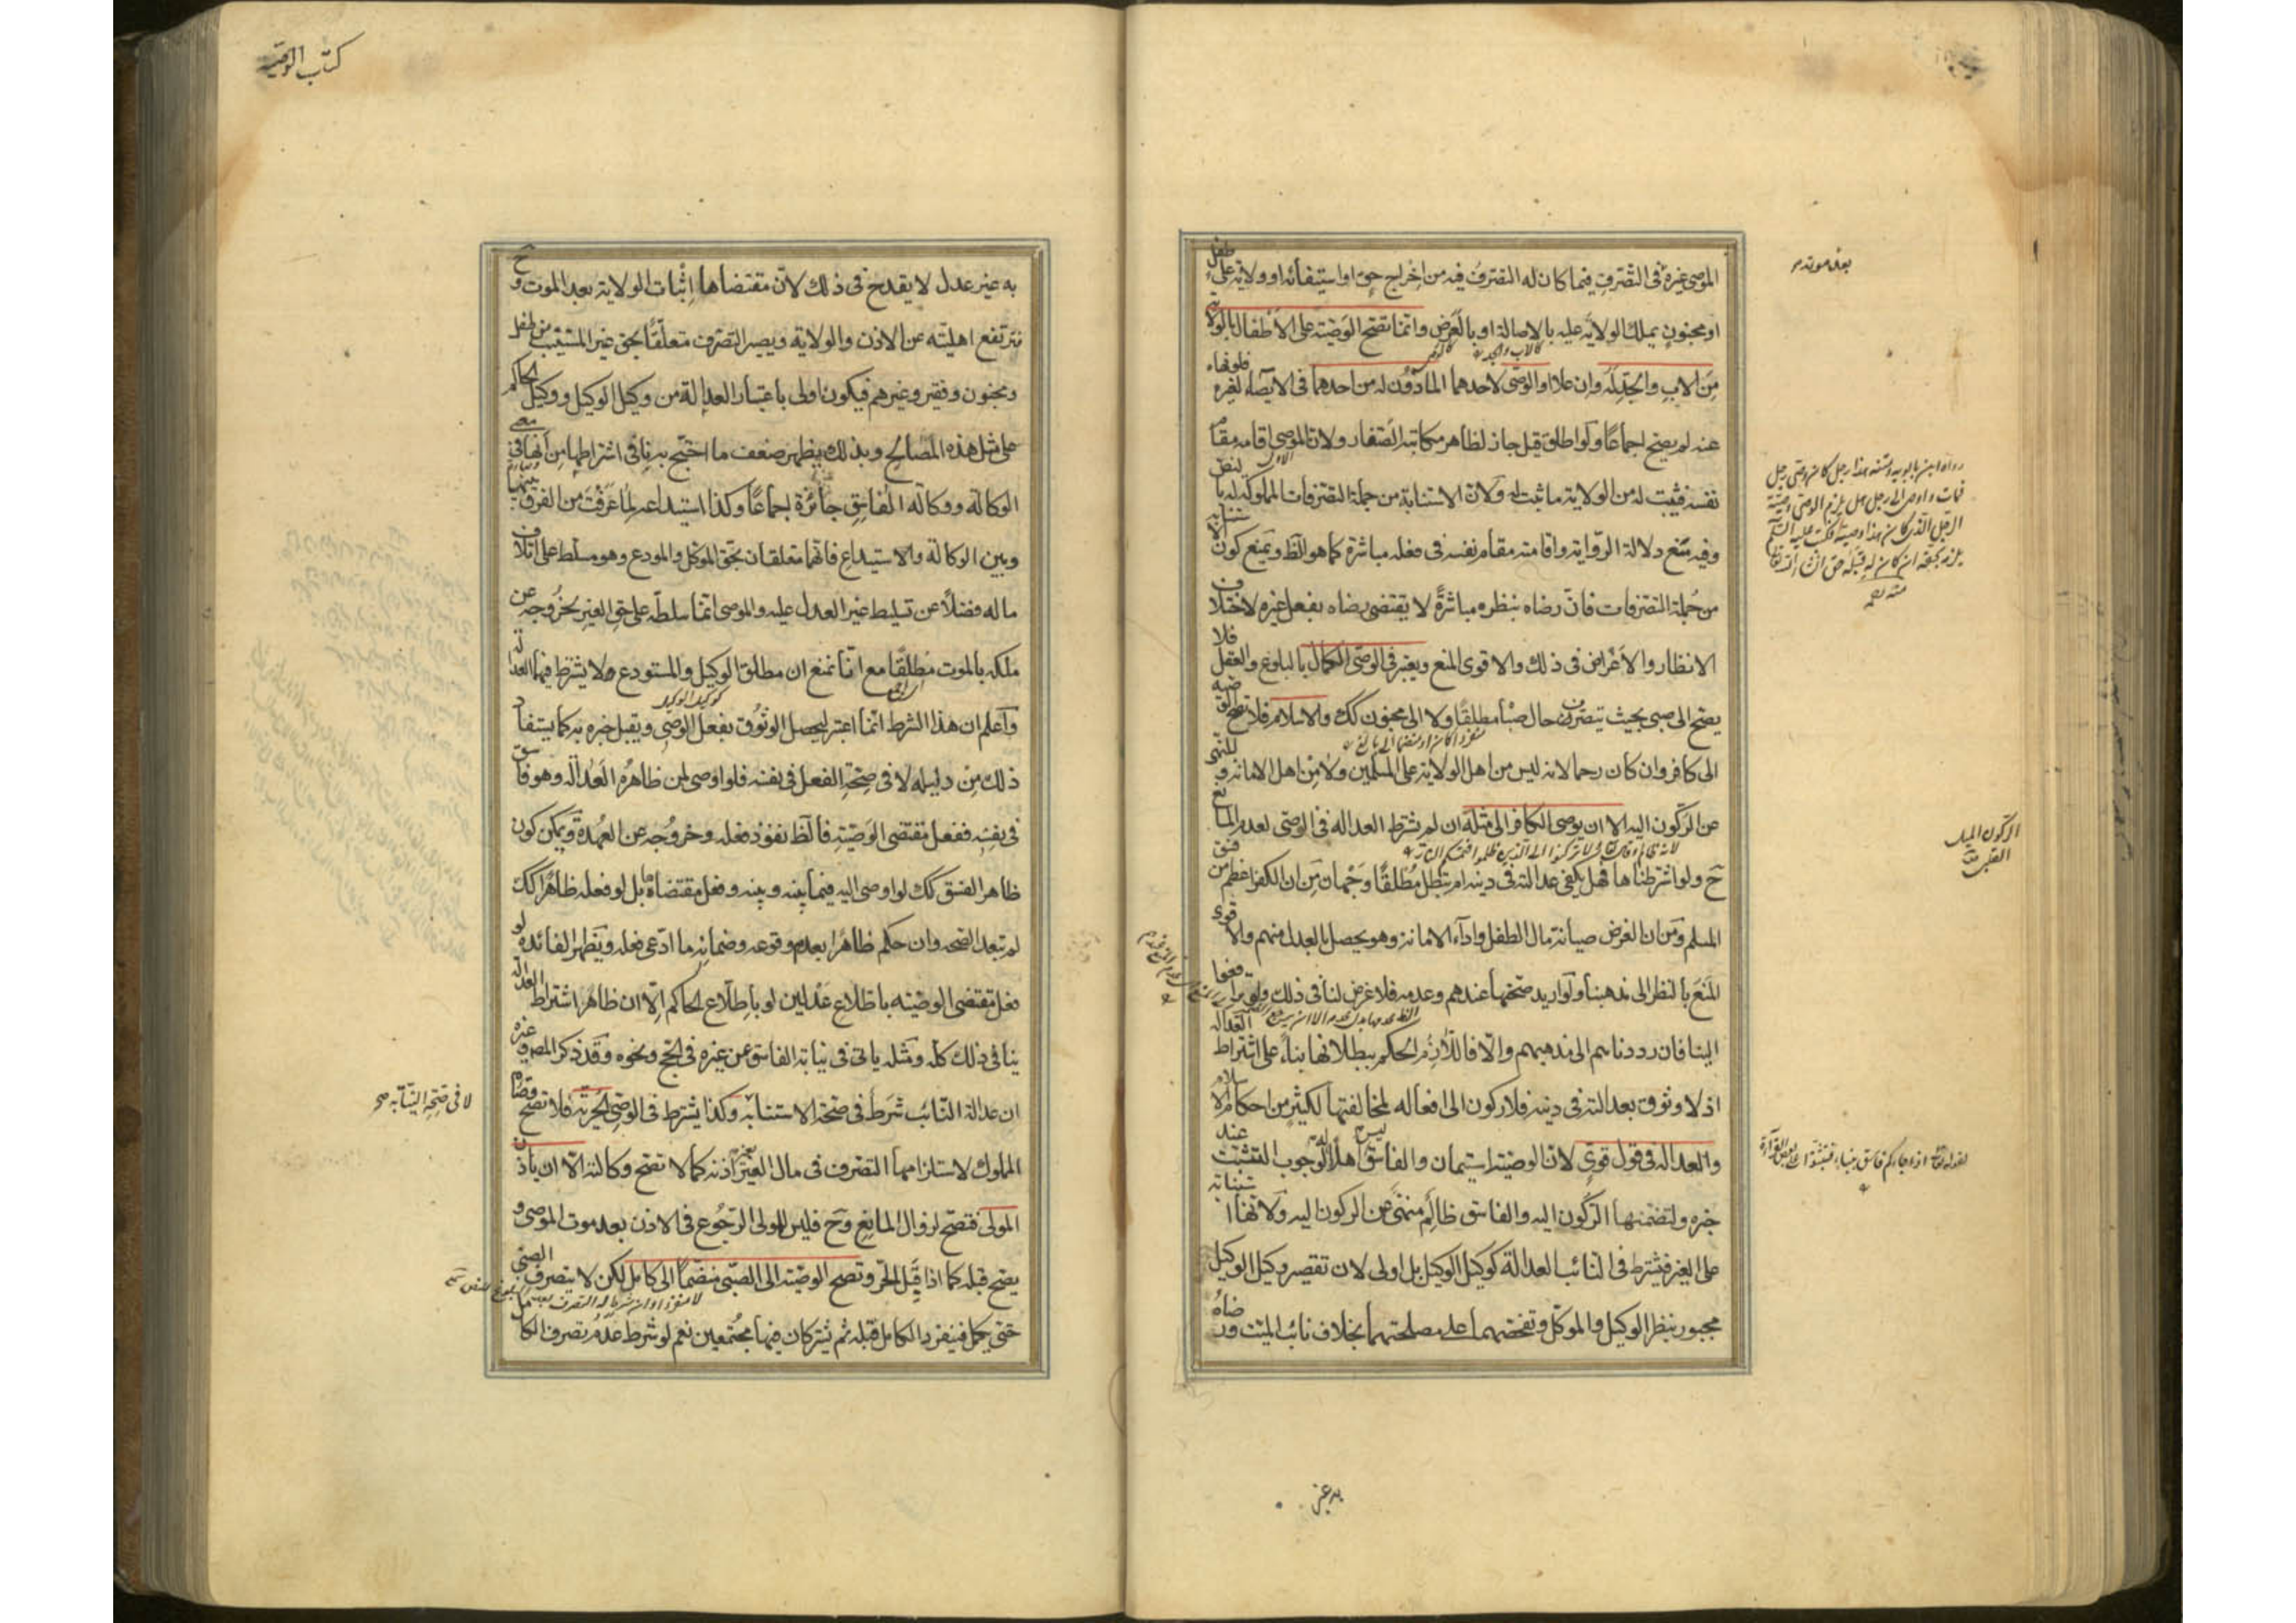 الموصي غيره في التصرف فيما كان له التصرف فيه من إخراج حق او استيفائه او ولاية على طفل
او مجنون يملك الولاية عليه بالاصالة او بالعرض وانما تصح الوصية على الاطفال بالولاية
كالاب والجد
من الاب والجد له وان علا او الوصي لاحدهما المأذون له من احدهما في الايصاء لغيره فلو نهاه
عنه لم يصح اجماعا ولو اطلق قيل جاز لظاهر مكاتبة الصفار ولان الموصي اقامه مقام
نفسه فيثبت له من الولاية ما ثبت له ولان الاستنابة من جملة التصرفات المملوكة له بالنص
وفيه منع دلالة الرواية واقامته مقام نفسه في فعله مباشرة كما هو الظ ويمنع كون الاستنابة
من جملة التصرفات فان رضاه بنظره مباشرة لا يقتضي رضاه بفعل غيره لاختلاف
الانظار والاغراض في ذلك والاقوى المنع ويعتبر في الوصي الكمال بالبلوغ والعقل فلا
يصح الى صبي بحيث يتصرف حال صباه مطلقا ولا الى مجنون كك والاسلام فلا تصح الوصية
منفردا كان او منضما الى بالغ
الى كافر وان كان رحما لانه ليس من اهل الولاية على المسلمين ولا من اهل الامانة وللنهي
عن الركون اليه الا ان يوصي الكافر الى مثله ان لم نشترط العدالة في الوصي لعدم المانع
لانه ظالم وقال تعالى ولا تركنوا الى الذين ظلموا فتمسكم النار
ح ولو اشترطناها فهل يكفي عدالته في دينه ام تبطل مطلقا وجهان من ان الكفر اعظم من فسق
المسلم ومن ان الغرض صيانة مال الطفل واداء الامانة وهو يحصل بالعدل منهم والاقوى
المنع بالنظر الى مذهبنا ولو اريد صحتها عندهم وعدمه فلا غرض لنا في ذلك ولو ترافعوا
الينا فان رددناهم الى مذهبهم والا فاللازم الحكم ببطلانها بناء على اشتراط العدالة
اذ لا وثوق بعدالته في دينه فلا ركون الى افعاله لمخالفتها لكثير من احكام الاسلام
والعدالة في قول قوي لان الوصية استيمان والفاسق ليس اهلا له لوجوب التثبت عند
خبره ولتضمنها الركون اليه والفاسق ظالم منهي عن الركون اليه ولانها استنابة
على الغير فيشترط في النائب العدالة كوكيل الوكيل بل اولى لان تقصير وكيل الوكيل
مجبور بنظر الوكيل والموكل وتفحصهما على مصلحتهما بخلاف نائب الميت ورضاه
بعد موته
رواه ابن بابويه
الركون الميل
القلبي
لقوله تعالى ان جاءكم فاسق بنبأ فتبينوا
به غير
كتاب الوصية
به غير عدل لا يقدح في ذلك لان مقتضاها إثبات الولاية بعد الموت وح
فترتفع اهليته عن الاذن والولاية ويصير التصرف متعلقا بحق غير المستنيب من طفل
ومجنون وفقير وغيرهم فيكون اولى باعتبار العدالة من وكيل الوكيل ووكيل الحاكم
على مثل هذه المصالح وبذلك يظهر ضعف ما احتج به نافي اشتراطها من أنها في معنى
الوكالة ووكالة الفاسق جائزة إجماعا وكذا استيداعه لما عرفت من الفرق بينها
وبين الوكالة والاستيداع فانهما متعلقان بحق الموكل والمودع وهو مسلط على اتلاف
ماله فضلا عن تسليط غير العدل عليه والموصي انما سلطه على حق الغير لخروجه عن
ملكه بالموت مطلقا مع أنا نمنع ان مطلق الوكيل والمستودع لا يشترط فيهما العدالة
كوكيل الوكيل
واعلم ان هذا الشرط انما اعتبر ليحصل الوثوق بفعل الوصي ويقبل خبره به كما يستفاد
ذلك من دليله لا في صحة الفعل في نفسه فلو اوصى لمن ظاهره العدالة وهو فاسق
في نفسه ففعل مقتضى الوصية فالظ نفوذ فعله وخروجه عن العهدة ويمكن كون
ظاهر الفسق كك لو اوصى اليه فيما بينه وبينه وفعل مقتضاها بل لو فعله ظاهرا كك
لم تبعد الصحة وان حكم ظاهرا بعدم وقوعه وضمانه ما ادعى فعله وتظهر الفائدة لو
فعل مقتضى الوصية باطلاع عدلين او باطلاع الحاكم إلا ان ظاهر اشتراط العدالة
ينافي ذلك كله ومثله ياتي في نيابة الفاسق عن غيره في الحج ونحوه وقد ذكر المص وغيره
ان عدالة النائب شرط في صحة الاستنابة وكذا يشترط في الوصي الحرية فلا تصح وصاية
المملوك لاستلزامها التصرف في مال الغير بغير اذنه كما لا تصح وكالته الا ان ياذن
المولى فتصح لزوال المانع وح فليس للمولى الرجوع في الاذن بعد موت الموصي و
يصح قبله كما اذا قبل الحر وتصح الوصية الى الصبي منضما الى كامل لكن لا يتصرف الصبي
حتى يكمل فينفرد الكامل قبله ثم يشتركان فيها مجتمعين نعم لو شرط عدم تصرف الكامل
لا في صحة النيابة صح